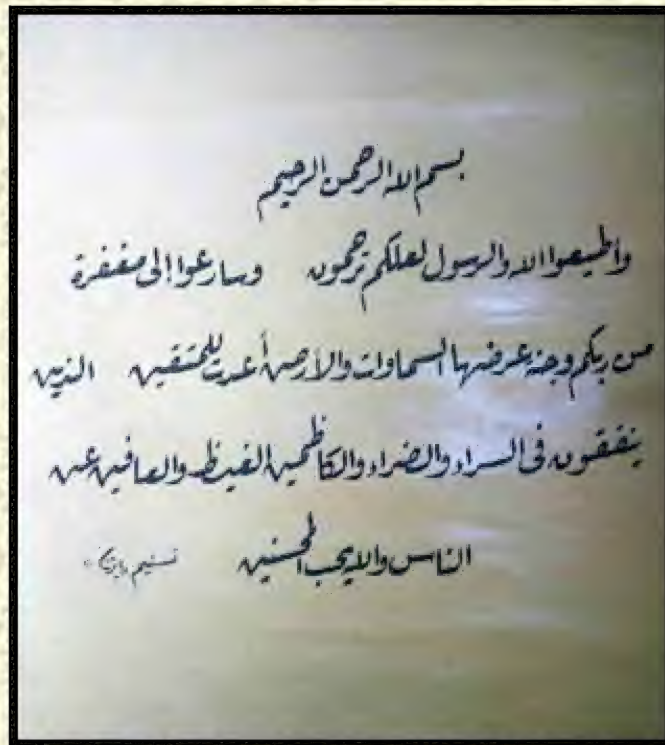 بسم الله الرحمن الرحيم
وأطيعوا الله والرسول لعلكم ترحمون وسارعوا إلى مغفرة
من ربكم وجنة عرضها السماوات والأرض أعدت للمتقين الذين
ينفقون في السراء والضراء والكاظمين الغيظ والعافين عن
الناس والله يحب المحسنين تسنيم